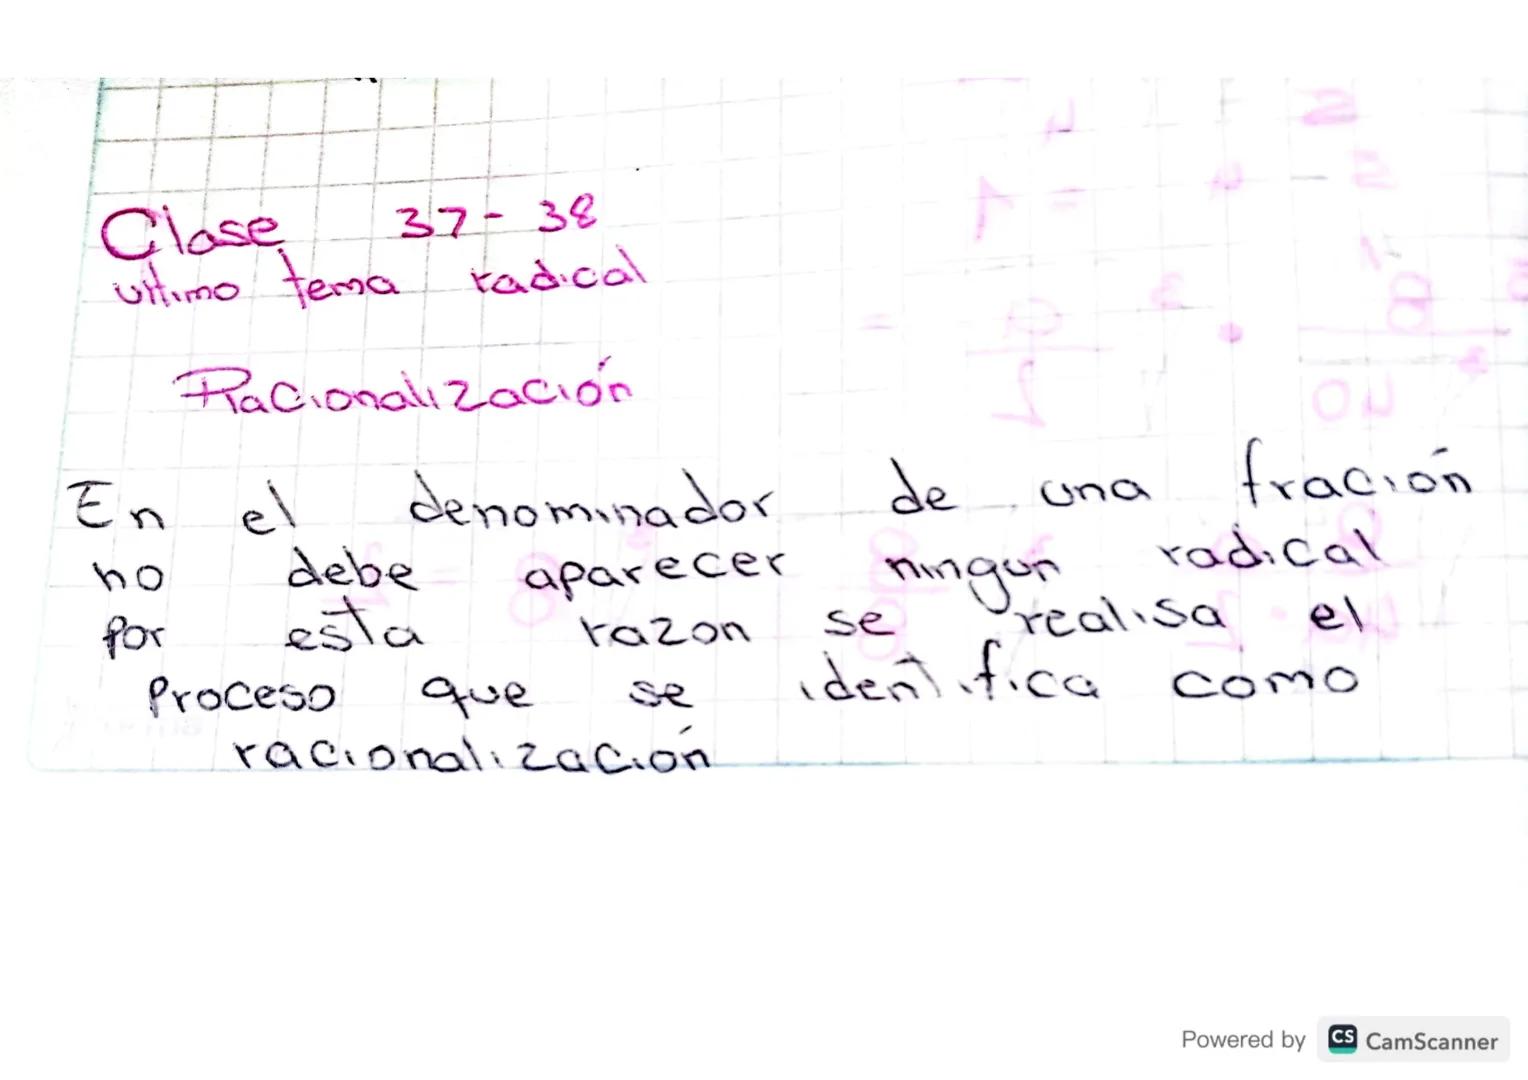 Clase 37-38
ultimo tema radical
Racionalización
En el denominador de una fración
no debe aparecer ningun radical
por esta razon se realisa el
Proceso que se identifica como
racionalización
Powered by CS CamScanner